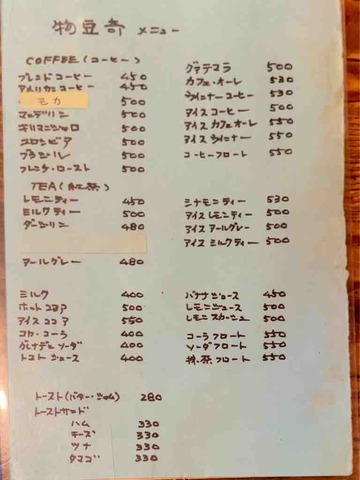 物豆奇 メニュー
COFFEE (コーヒー)
ブレンドコーヒー 450
アメリカンコーヒー 450
モカ 500
マンデリン 500
キリマンジャロ 500
コロンビア 500
ブラジル 500
フレンチ・ロースト 500
グァテマラ 500
カフェ・オーレ 530
ウィンナーコーヒー 530
アイスコーヒー 500
アイスカフェオーレ 550
アイスウィンナー 550
コーヒーフロート 550
TEA (紅茶)
レモンティー 450
ミルクティー 500
ダージリン 480
アールグレー 480
シナモンティー 530
アイスレモンティー 500
アイスアールグレー 500
アイスミルクティー 500
ミルク 400
ホットココア 500
アイスココア 550
コカ・コーラ 400
グレナデンソーダ 400
トマトジュース 400
バナナジュース 450
レモンジュース 500
レモンスカッシュ 500
コーラフロート 550
ソーダフロート 550
抹茶フロート 550
トースト(バター・ジャム) 280
トーストサンド
ハム 330
チーズ 330
ツナ 330
タマゴ 330